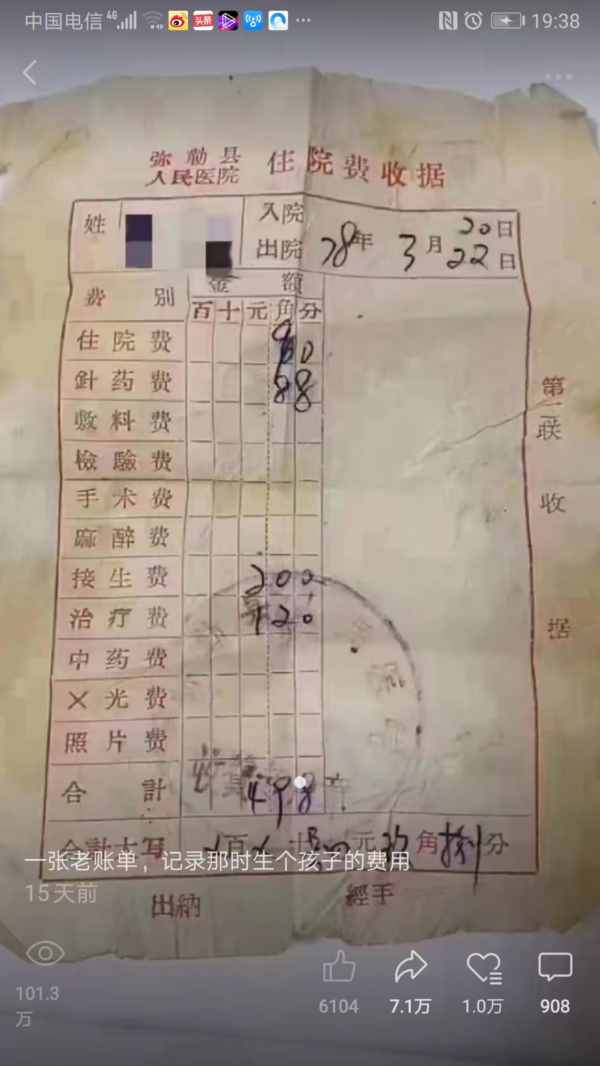 中国电信 4G 19:38
弥勒县
人民医院
住院费收据
姓
入院 20日
出院 78年 3月 22日
费别 金额
百 十 元 角 分
住院费 90
針药费 88
敷料费
檢驗费
手术费
麻醉费
接生费 200
治疗费 120
中药费
X光费
照片费
合計 498
合計大写 百 十 元 角 捌分
出納 經手
第一联 收据
一张老账单，记录那时生个孩子的费用
15天前
101.3万
6104
7.1万
1.0万
908